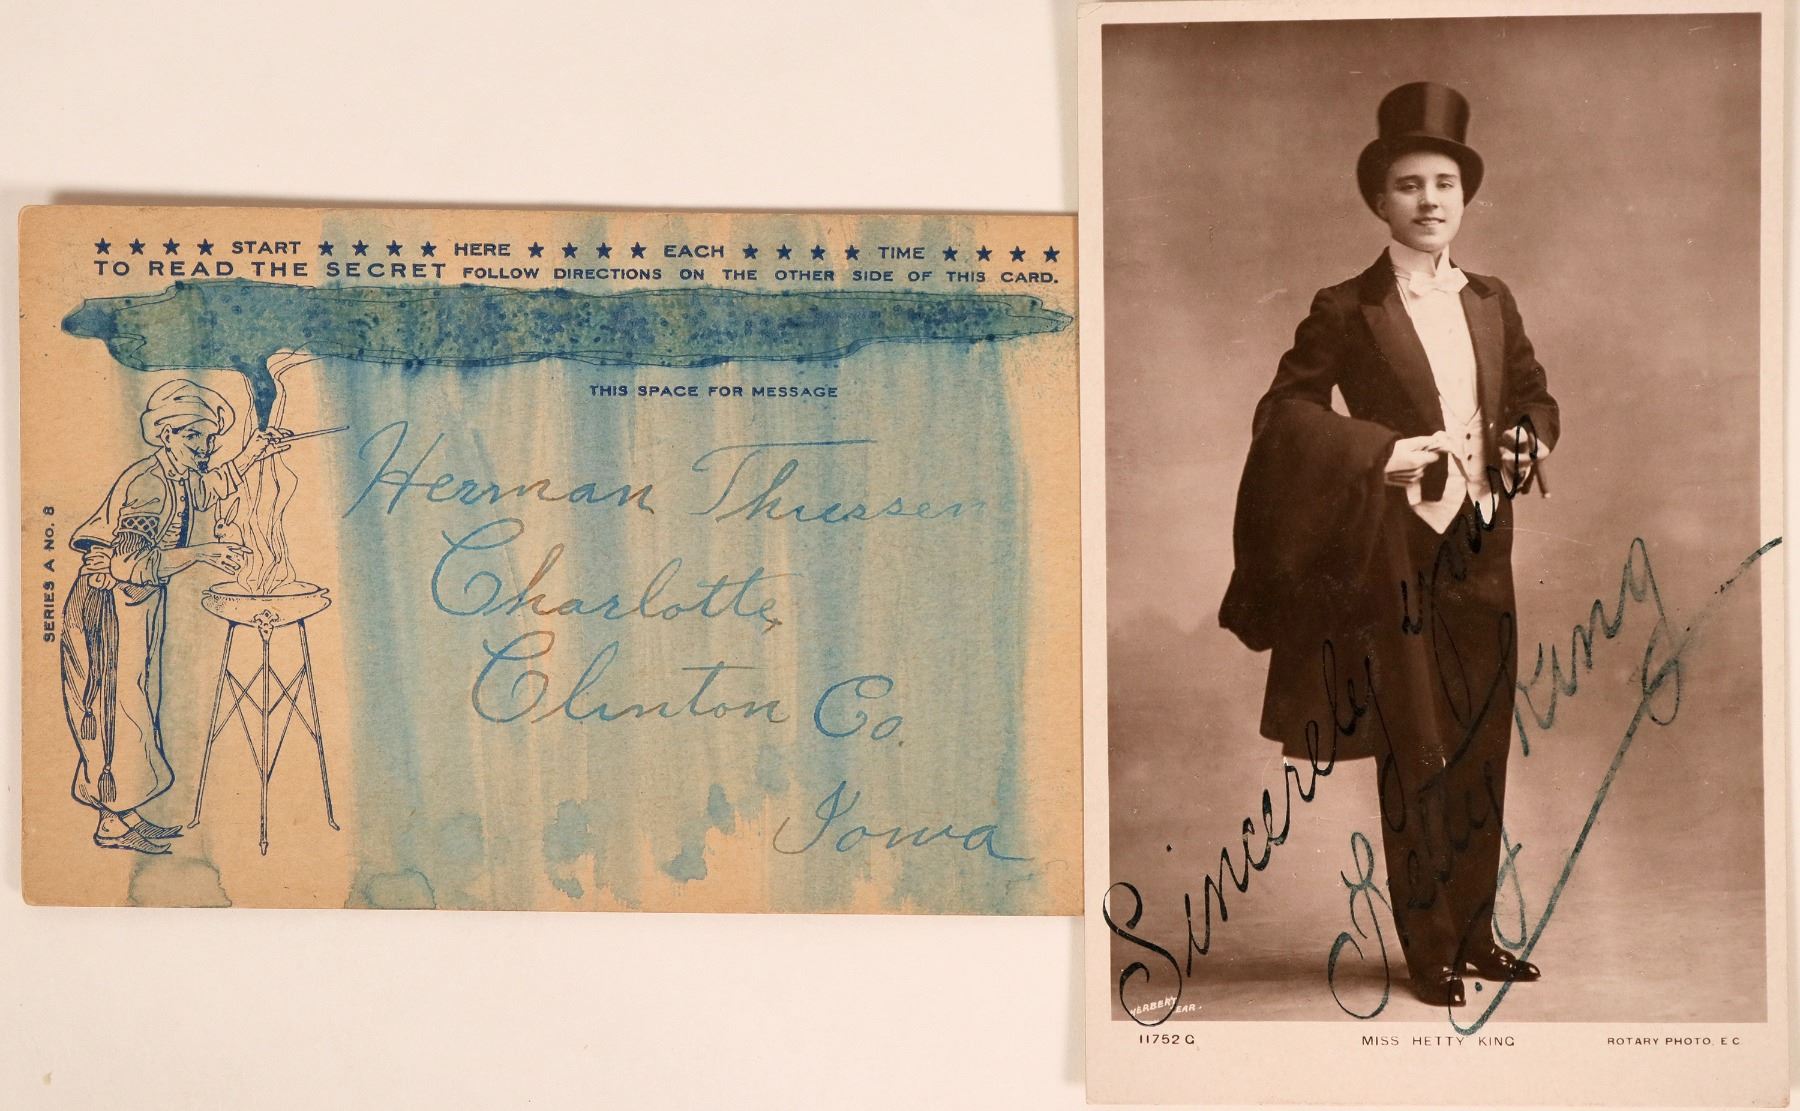 ★ ★ ★ ★ START ★ ★ ★ ★ HERE ★ ★ ★ ★ EACH ★ ★ ★ ★ TIME ★ ★ ★ ★
TO READ THE SECRET FOLLOW DIRECTIONS ON THE OTHER SIDE OF THIS CARD.
THIS SPACE FOR MESSAGE
SERIES A NO. 8
Herman Thiessen
Charlotte,
Clinton Co.
Iowa
Sincerely yours
Hetty King
HERBERT
11752 G
MISS HETTY KING
ROTARY PHOTO. E C